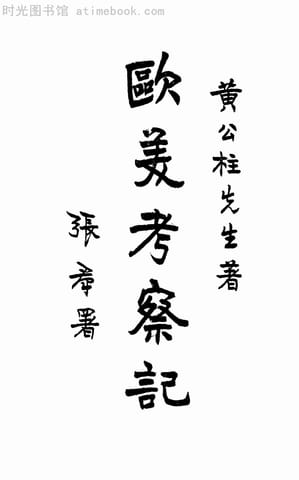 时光图书馆 atimebook.com
黄公柱先生著
歐美考察記
張羣署